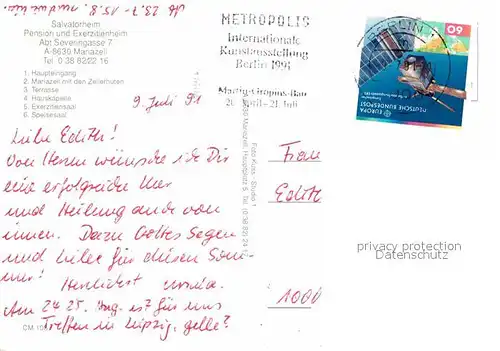 Ab 23.7 - 15.8.
Salvatorheim
Pension und Exerzitienheim
Abt Severingasse 7
A-8630 Mariazell
Tel 0 38 82/22 16
1. Haupteingang
2. Mariazell mit den Zellerhüten
3. Terrasse
4. Hauskapelle
5. Exerzitiensaal
6. Speisesaal
METROPOLIS
Internationale
Kunstausstellung
Berlin 1991
Martin-Gropius-Bau
20. April - 21. Juli
BERLIN
60
DEUTSCHE BUNDESPOST
EUROPA
9. Juli 91
Liebe Edith!
Von Herzen wünsche ich Dir
eine erfolgreiche Kur
und Heilung auch von
innen. Dazu Gottes Segen
und Liebe für diesen Som-
mer! Herzlichst Ursula.
Am 24. 25. Aug. ist für uns
Treffen in Leipzig, gelle?
Foto Kuss - Studio 1
8630 Mariazell, Hauptplatz 5, Tel. (0 38 82) 24 12
Frau
Edith
1000
privacy protection
Datenschutz
CM 108